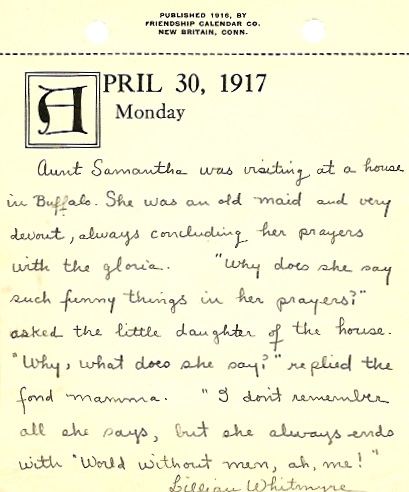 PUBLISHED 1916, BY
FRIENDSHIP CALENDAR CO.
NEW BRITAIN, CONN.
APRIL 30, 1917
Monday
Aunt Samantha was visiting at a house
in Buffalo. She was an old maid and very
devout, always concluding her prayers
with the gloria. "Why does she say
such funny things in her prayers?"
asked the little daughter of the house.
"Why, what does she say?" replied the
fond mamma. "I don't remember
all she says, but she always ends
with "World without men, ah, me!"
Lillian Whitmyre